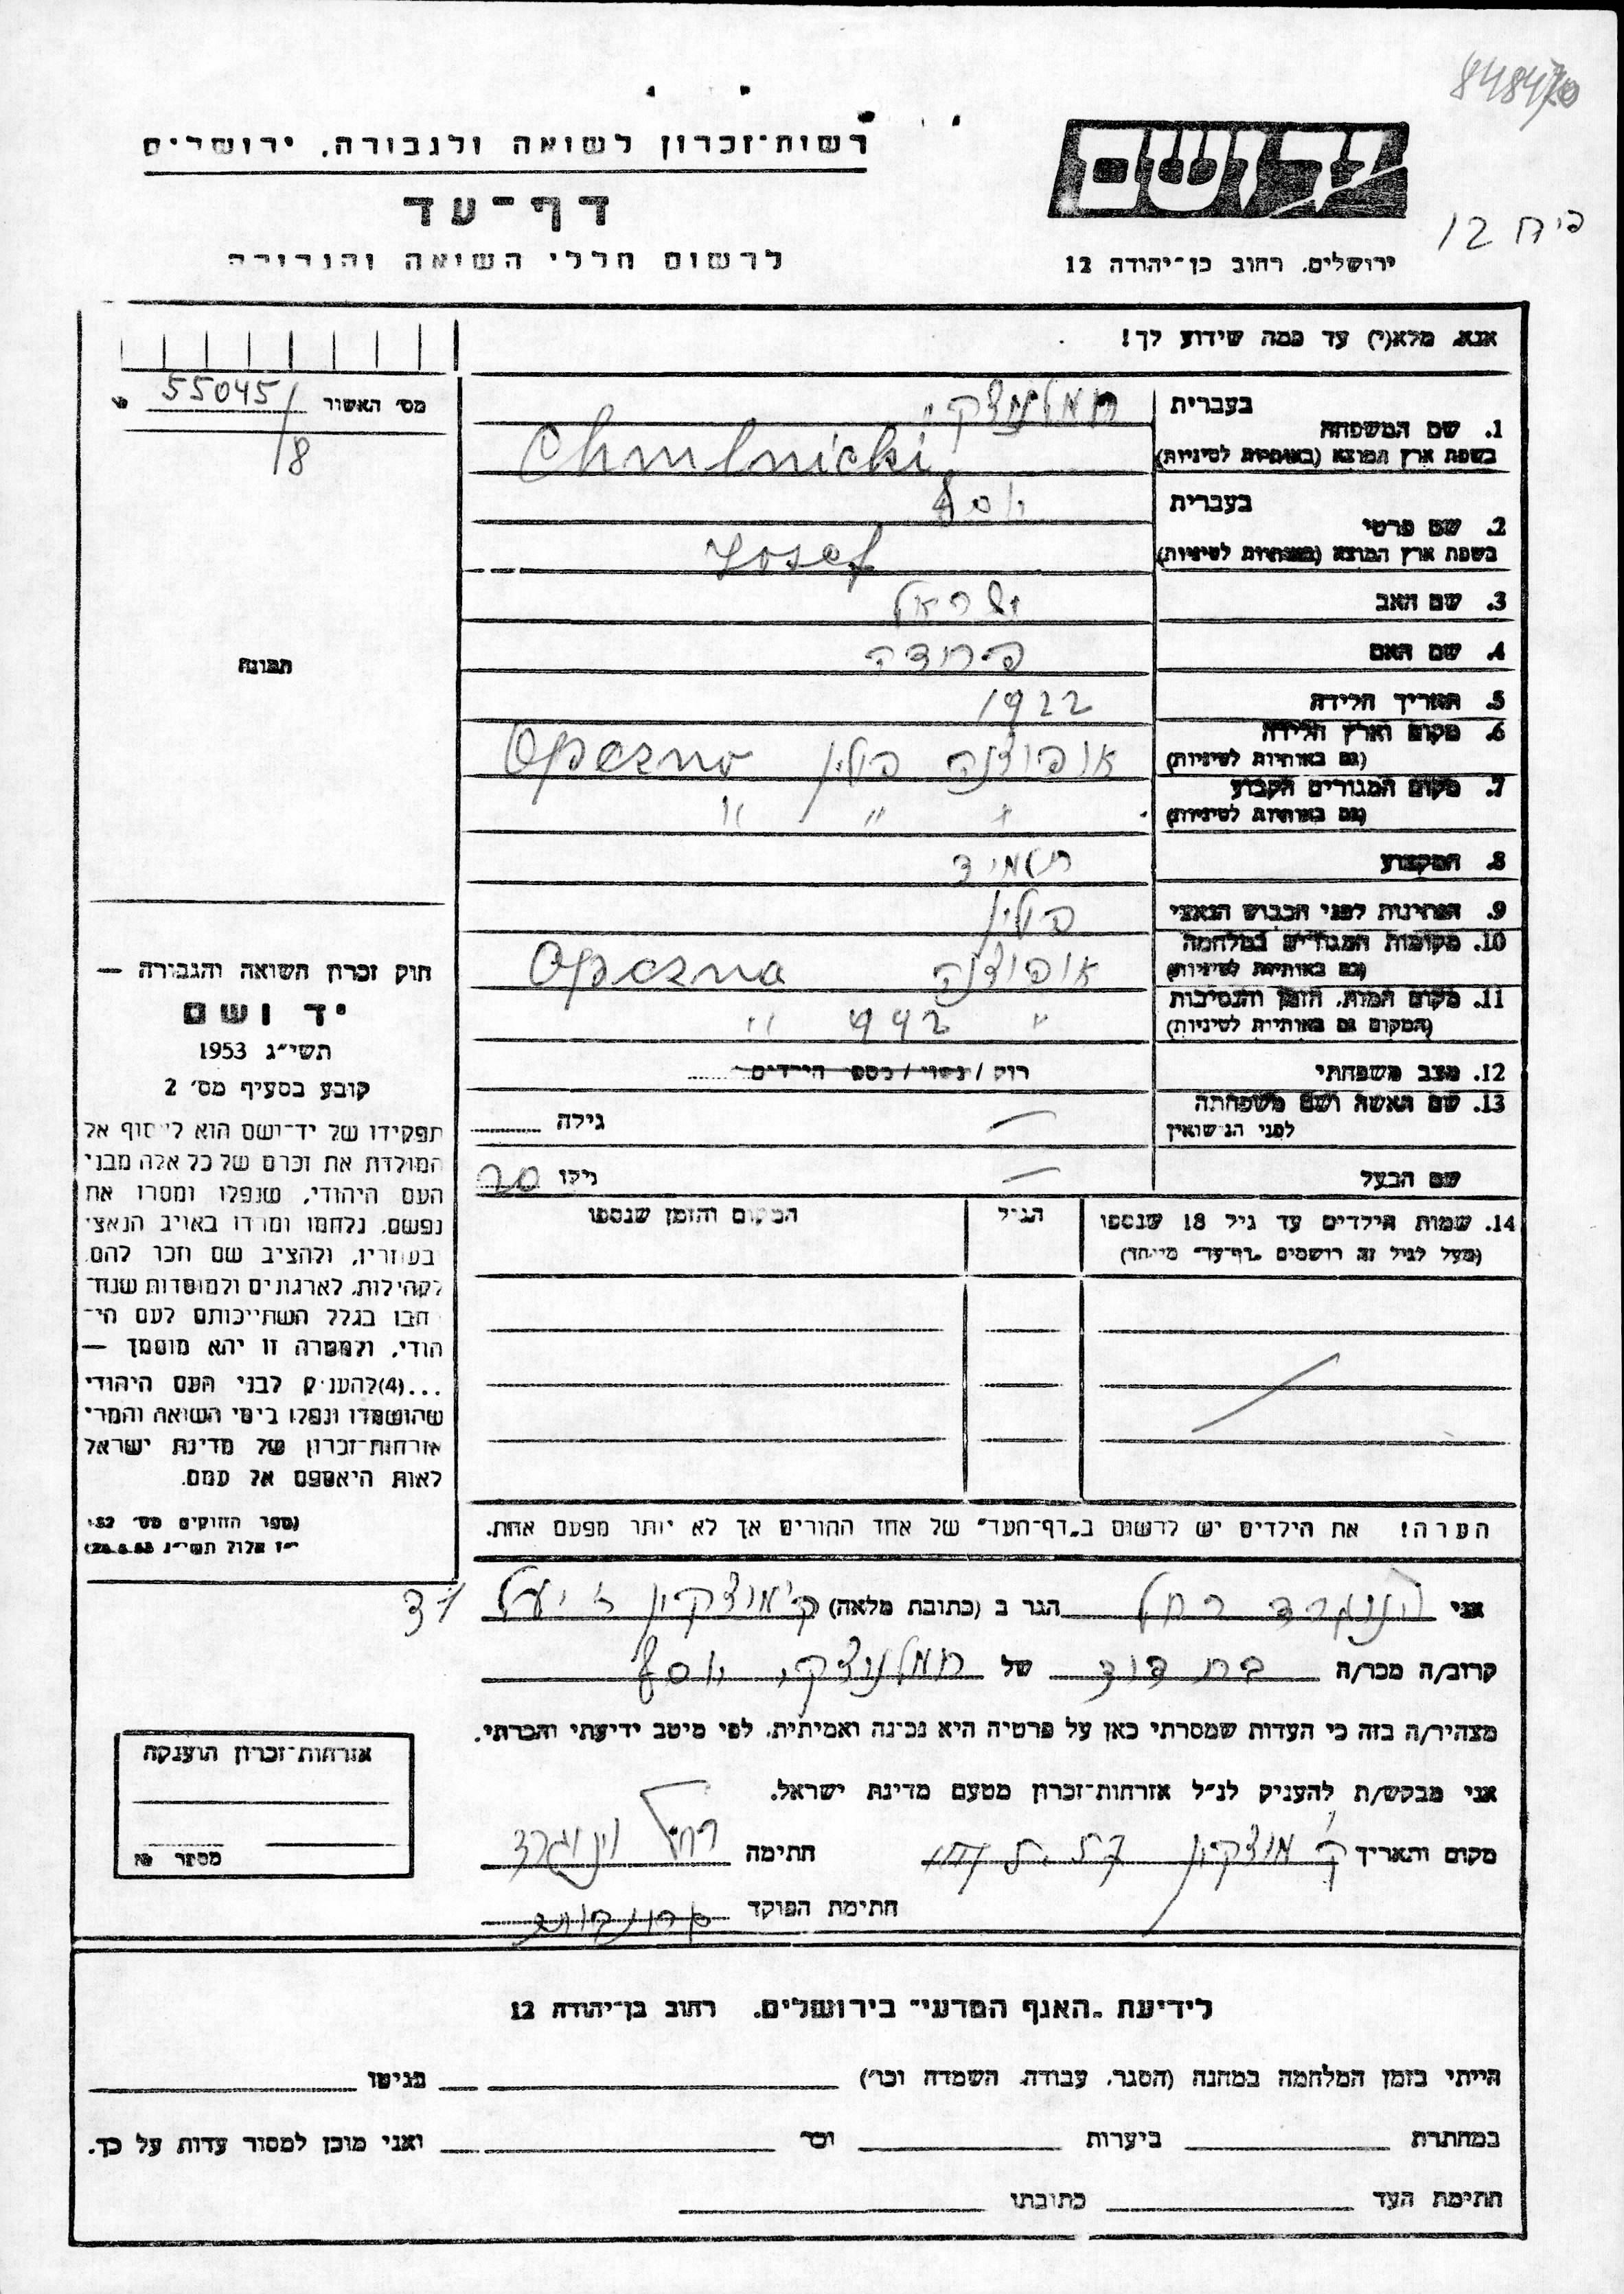 848470
רשות־זכרון לשואה ולגבורה, ירושלים
יד ושם
דף־עד
פיח 12
לרשום חללי השואה והגבורה
ירושלים, רחוב בן־יהודה 12
אנא, מלא(י) עד כמה שידוע לך!
מס׳ האשור 55045/8
1. שם המשפחה
בעברית חמלניצקי
בשפת ארץ המוצא (באותיות לטיניות) Chmlnicki
2. שם פרטי
בעברית יוסף
בשפת ארץ המוצא (באותיות לטיניות) Josef
3. שם האב ישראל
4. שם האם
5. תאריך הלידה 1922
6. מקום וארץ הלידה אופוצנה פולין Opeczno
(גם באותיות לטיניות)
7. מקום המגורים הקבוע " " "
(גם באותיות לטיניות)
8. המקצוע
9. הנתינות לפני הכבוש הנאצי פולין
10. מקומות המגורים במלחמה אופוצנה Opeczna
(גם באותיות לטיניות)
11. מקום המות, הזמן והנסיבות " 942 "
(המקום גם באותיות לטיניות)
12. מצב משפחתי רווק / נשוי / מספר הילדים
13. שם האשה ושם משפחתה — גילה
לפני הנישואין
שם הבעל — גילו 20
14. שמות הילדים עד גיל 18 שנספו
(מעל לגיל זה רושמים "דף־עד" מיוחד)
הגיל
המקום והזמן שנספו
הערה! את הילדים יש לרשום ב"דף־העד" של אחד ההורים אך לא יותר מפעם אחת.
תמונה
חוק זכרון השואה והגבורה —
יד ושם
תשי״ג 1953
קובע בסעיף מס׳ 2
תפקידו של יד־ושם הוא לאסוף אל
המולדת את זכרם של כל אלה מבני
העם היהודי, שנפלו ומסרו את
נפשם, נלחמו ומרדו באויב הנאצי
בעוזריו, ולהציב שם וזכר להם,
לקהילות, לארגונים ולמוסדות שנח־
רבו בגלל השתייכותם לעם הי־
הודי, ולמטרה זו יהא מוסמך —
...(4) להעניק לבני העם היהודי
שהושמדו ונפלו בימי השואה והמרי
אזרחות־זכרון של מדינת ישראל
לאות היאספם אל עמם.
(ספר החוקים מס׳ 132
י״ז אלול תשי״ג 28.8.53)
אני וינגרד רחל הגר ב (כתובת מלאה) ק׳ מוצקין
קרוב/ה מכר/ה בת דוד של חמלניצקי יוסף
מצהיר/ה בזה כי העדות שמסרתי כאן על פרטיה היא נכונה ואמיתית, לפי מיטב ידיעתי והכרתי.
אני מבקש/ת להעניק לנ״ל אזרחות־זכרון מטעם מדינת ישראל.
מקום ותאריך ק׳ מוצקין חתימה רחל וינגרד
חתימת הפוקד
אזרחות־זכרון הוענקה
מספר №
לידיעת "האגף המדעי" בירושלים, רחוב בן־יהודה 12
הייתי בזמן המלחמה במחנה (הסגר, עבודה, השמדה וכו׳) בגיטו
במחתרת ביערות וכו׳ ואני מוכן למסור עדות על כך.
חתימת העד כתובתו